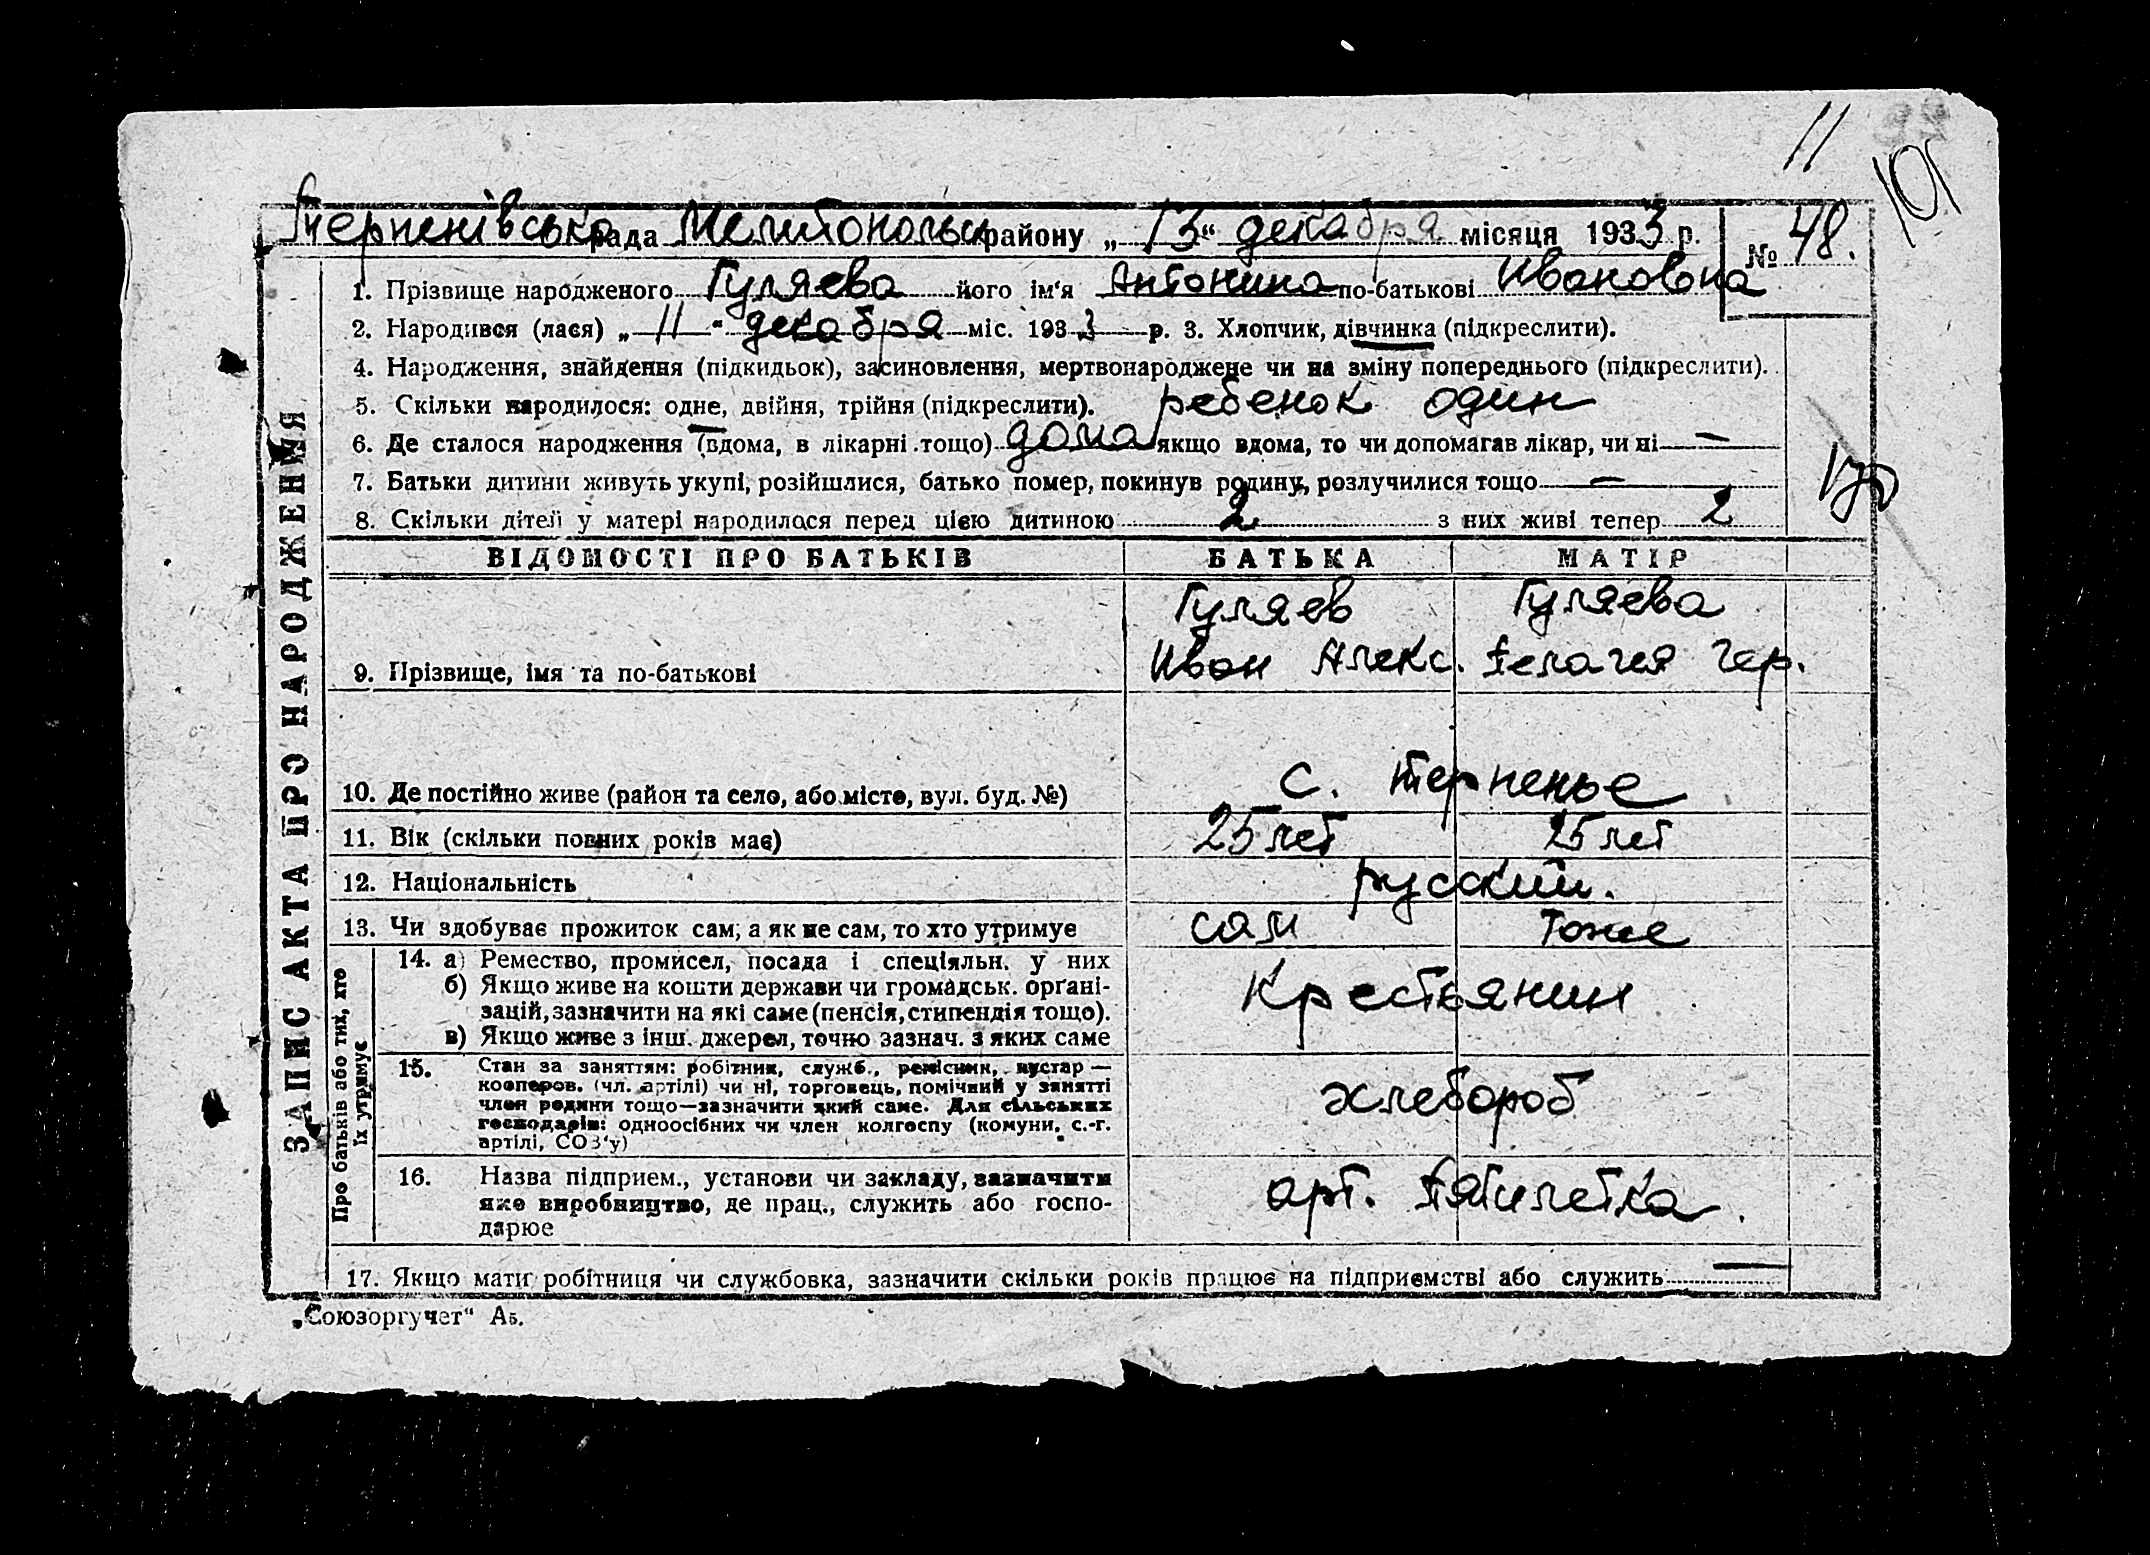 11
101
Терпенівська рада Мелитопольськ району „ 13 “ декабря місяця 1933 р. № 48.
1. Прізвище народженого Гуляева його ім'я Антонина по-батькові Ивановна
2. Народився (лася) „ 11 “ декабря міс. 1933 р. 3. Хлопчик, дівчинка (підкреслити).
4. Народження, знайдення (підкидьок), засиновлення, мертвонароджене чи на зміну попереднього (підкреслити).
5. Скільки народилося: одне, двійня, трійня (підкреслити). ребенок один
6. Де сталося народження (вдома, в лікарні тощо) дома якщо вдома, то чи допомагав лікар, чи ні —
7. Батьки дитини живуть укупі, розійшлися, батько помер, покинув родину, розлучилися тощо —
8. Скільки дітей у матері народилося перед цією дитиною 2 з них живі тепер 2
ЗАПИС АКТА ПРО НАРОДЖЕННЯ
ВІДОМОСТІ ПРО БАТЬКІВ БАТЬКА МАТІР
Гуляев Гуляева
9. Прізвище, імя та по-батькові Иван Алекс. Пелагея Гер.
10. Де постійно живе (район та село, або місто, вул. буд. №) с. Терпенье
11. Вік (скільки повних років має) 25 лет 25 лет
12. Національність русский.
13. Чи здобуває прожиток сам; а як не сам, то хто утримує сам тоже
Про батьків або тих, хто
їх утримує
14. а) Ремество, промисел, посада і спеціяльн. у них
б) Якщо живе на кошти держави чи громадськ. орґані-
зацій, зазначити на які саме (пенсія, стипендія тощо). Крестьянин
в) Якщо живе з інш. джерел, точно зазнач. з яких саме
15. Стан за заняттям: робітник, служб., ремісник, кустар —
кооперов. (чл. артілі) чи ні, торговець, помічний у занятті
член родини тощо—зазначити який саме. Для сільських хлебороб
господарів: одноосібних чи член колгоспу (комуни, с.-г.
артілі, СОЗ'у)
16. Назва підприєм., установи чи закладу, зазначити
яке виробництво, де прац., служить або госпо- арт. Пятилетка.
дарює
17. Якщо мати робітниця чи службовка, зазначити скільки років працює на підприємстві або служить —
„Союзоргучет“ А5.